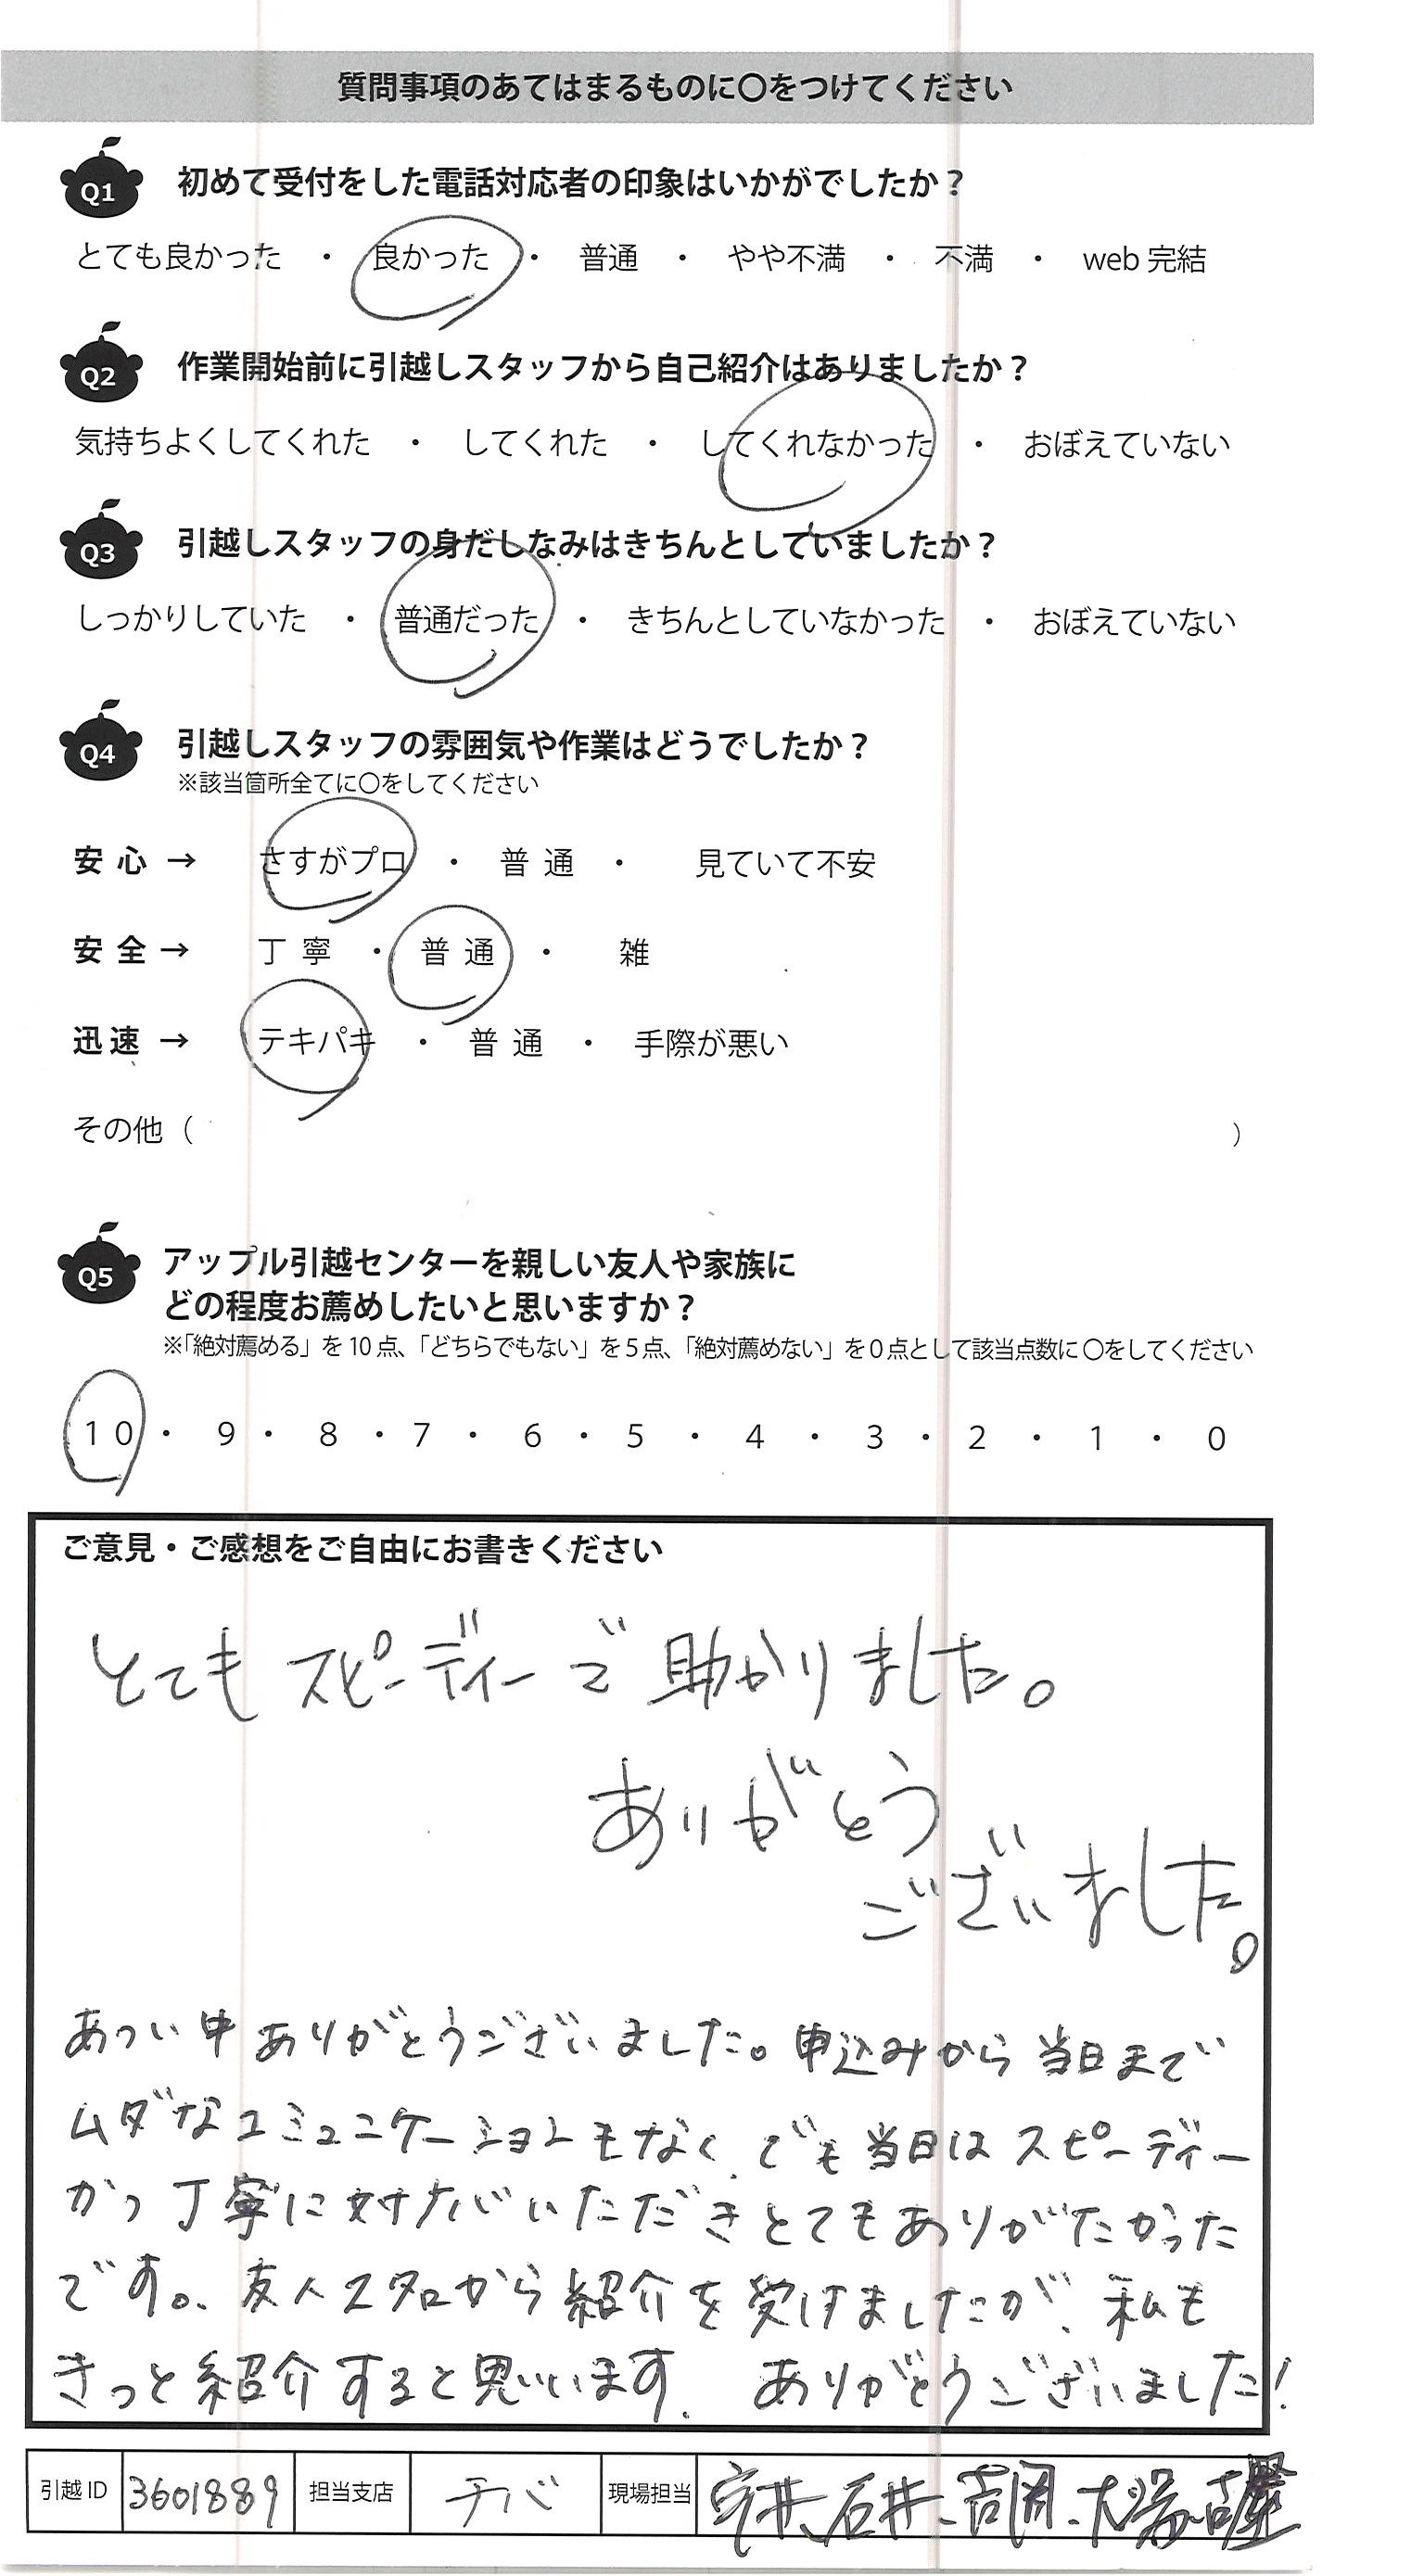 質問事項のあてはまるものに〇をつけてください
Q1 初めて受付をした電話対応者の印象はいかがでしたか？
とても良かった ・ 良かった ・ 普通 ・ やや不満 ・ 不満 ・ web 完結
Q2 作業開始前に引越しスタッフから自己紹介はありましたか？
気持ちよくしてくれた ・ してくれた ・ してくれなかった ・ おぼえていない
Q3 引越しスタッフの身だしなみはきちんとしていましたか？
しっかりしていた ・ 普通だった ・ きちんとしていなかった ・ おぼえていない
Q4 引越しスタッフの雰囲気や作業はどうでしたか？
※該当箇所全てに〇をしてください
安心 → さすがプロ ・ 普通 ・ 見ていて不安
安全 → 丁寧 ・ 普通 ・ 雑
迅速 → テキパキ ・ 普通 ・ 手際が悪い
その他（ ）
Q5 アップル引越センターを親しい友人や家族に
どの程度お薦めしたいと思いますか？
※「絶対薦める」を10点、「どちらでもない」を5点、「絶対薦めない」を0点として該当点数に〇をしてください
10 ・ 9 ・ 8 ・ 7 ・ 6 ・ 5 ・ 4 ・ 3 ・ 2 ・ 1 ・ 0
ご意見・ご感想をご自由にお書きください
とてもスピーディーで助かりました。
ありがとう
ございました。
あつい中ありがとうございました。申込みから当日まで
ムダなコミュニケーションもなく、でも当日はスピーディー
かつ丁寧に対応いただきとてもありがたかった
です。友人スタロから紹介を受けましたが、私も
きっと紹介すると思います。ありがとうございました！
引越ID 3601889 担当支店 チバ 現場担当 石井、吉岡、大場